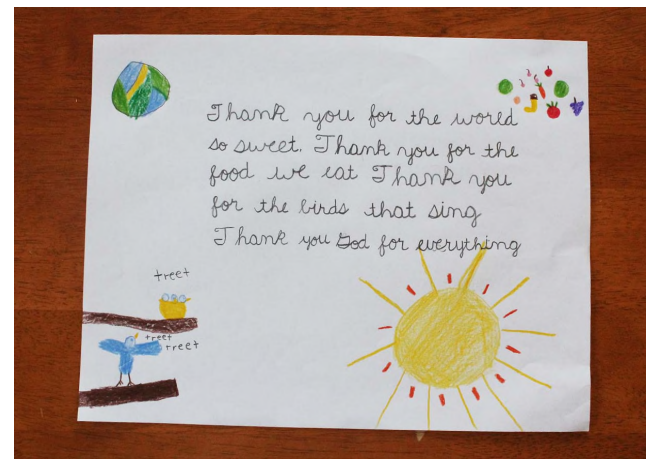 Thank you for the world
so sweet. Thank you for the
food we eat Thank you
for the birds that sing
Thank you God for everything
treet
treet
treet